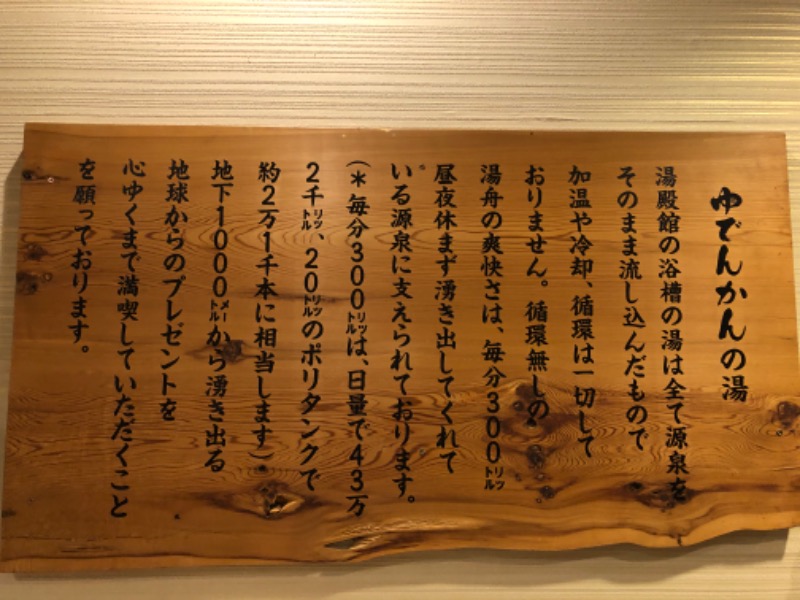 ゆでんかんの湯
湯殿館の浴槽の湯は全て源泉を
そのまま流し込んだもので
加温や冷却、循環は一切して
おりません。循環無しの
湯舟の爽快さは、毎分300㍑
昼夜休まず湧き出してくれて
いる源泉に支えられております。
(＊毎分300㍑は、日量で43万
2千㍑、20㍑のポリタンクで
約2万1千本に相当します)
地下1000㍍から湧き出る
地球からのプレゼントを
心ゆくまで満喫していただくこと
を願っております。